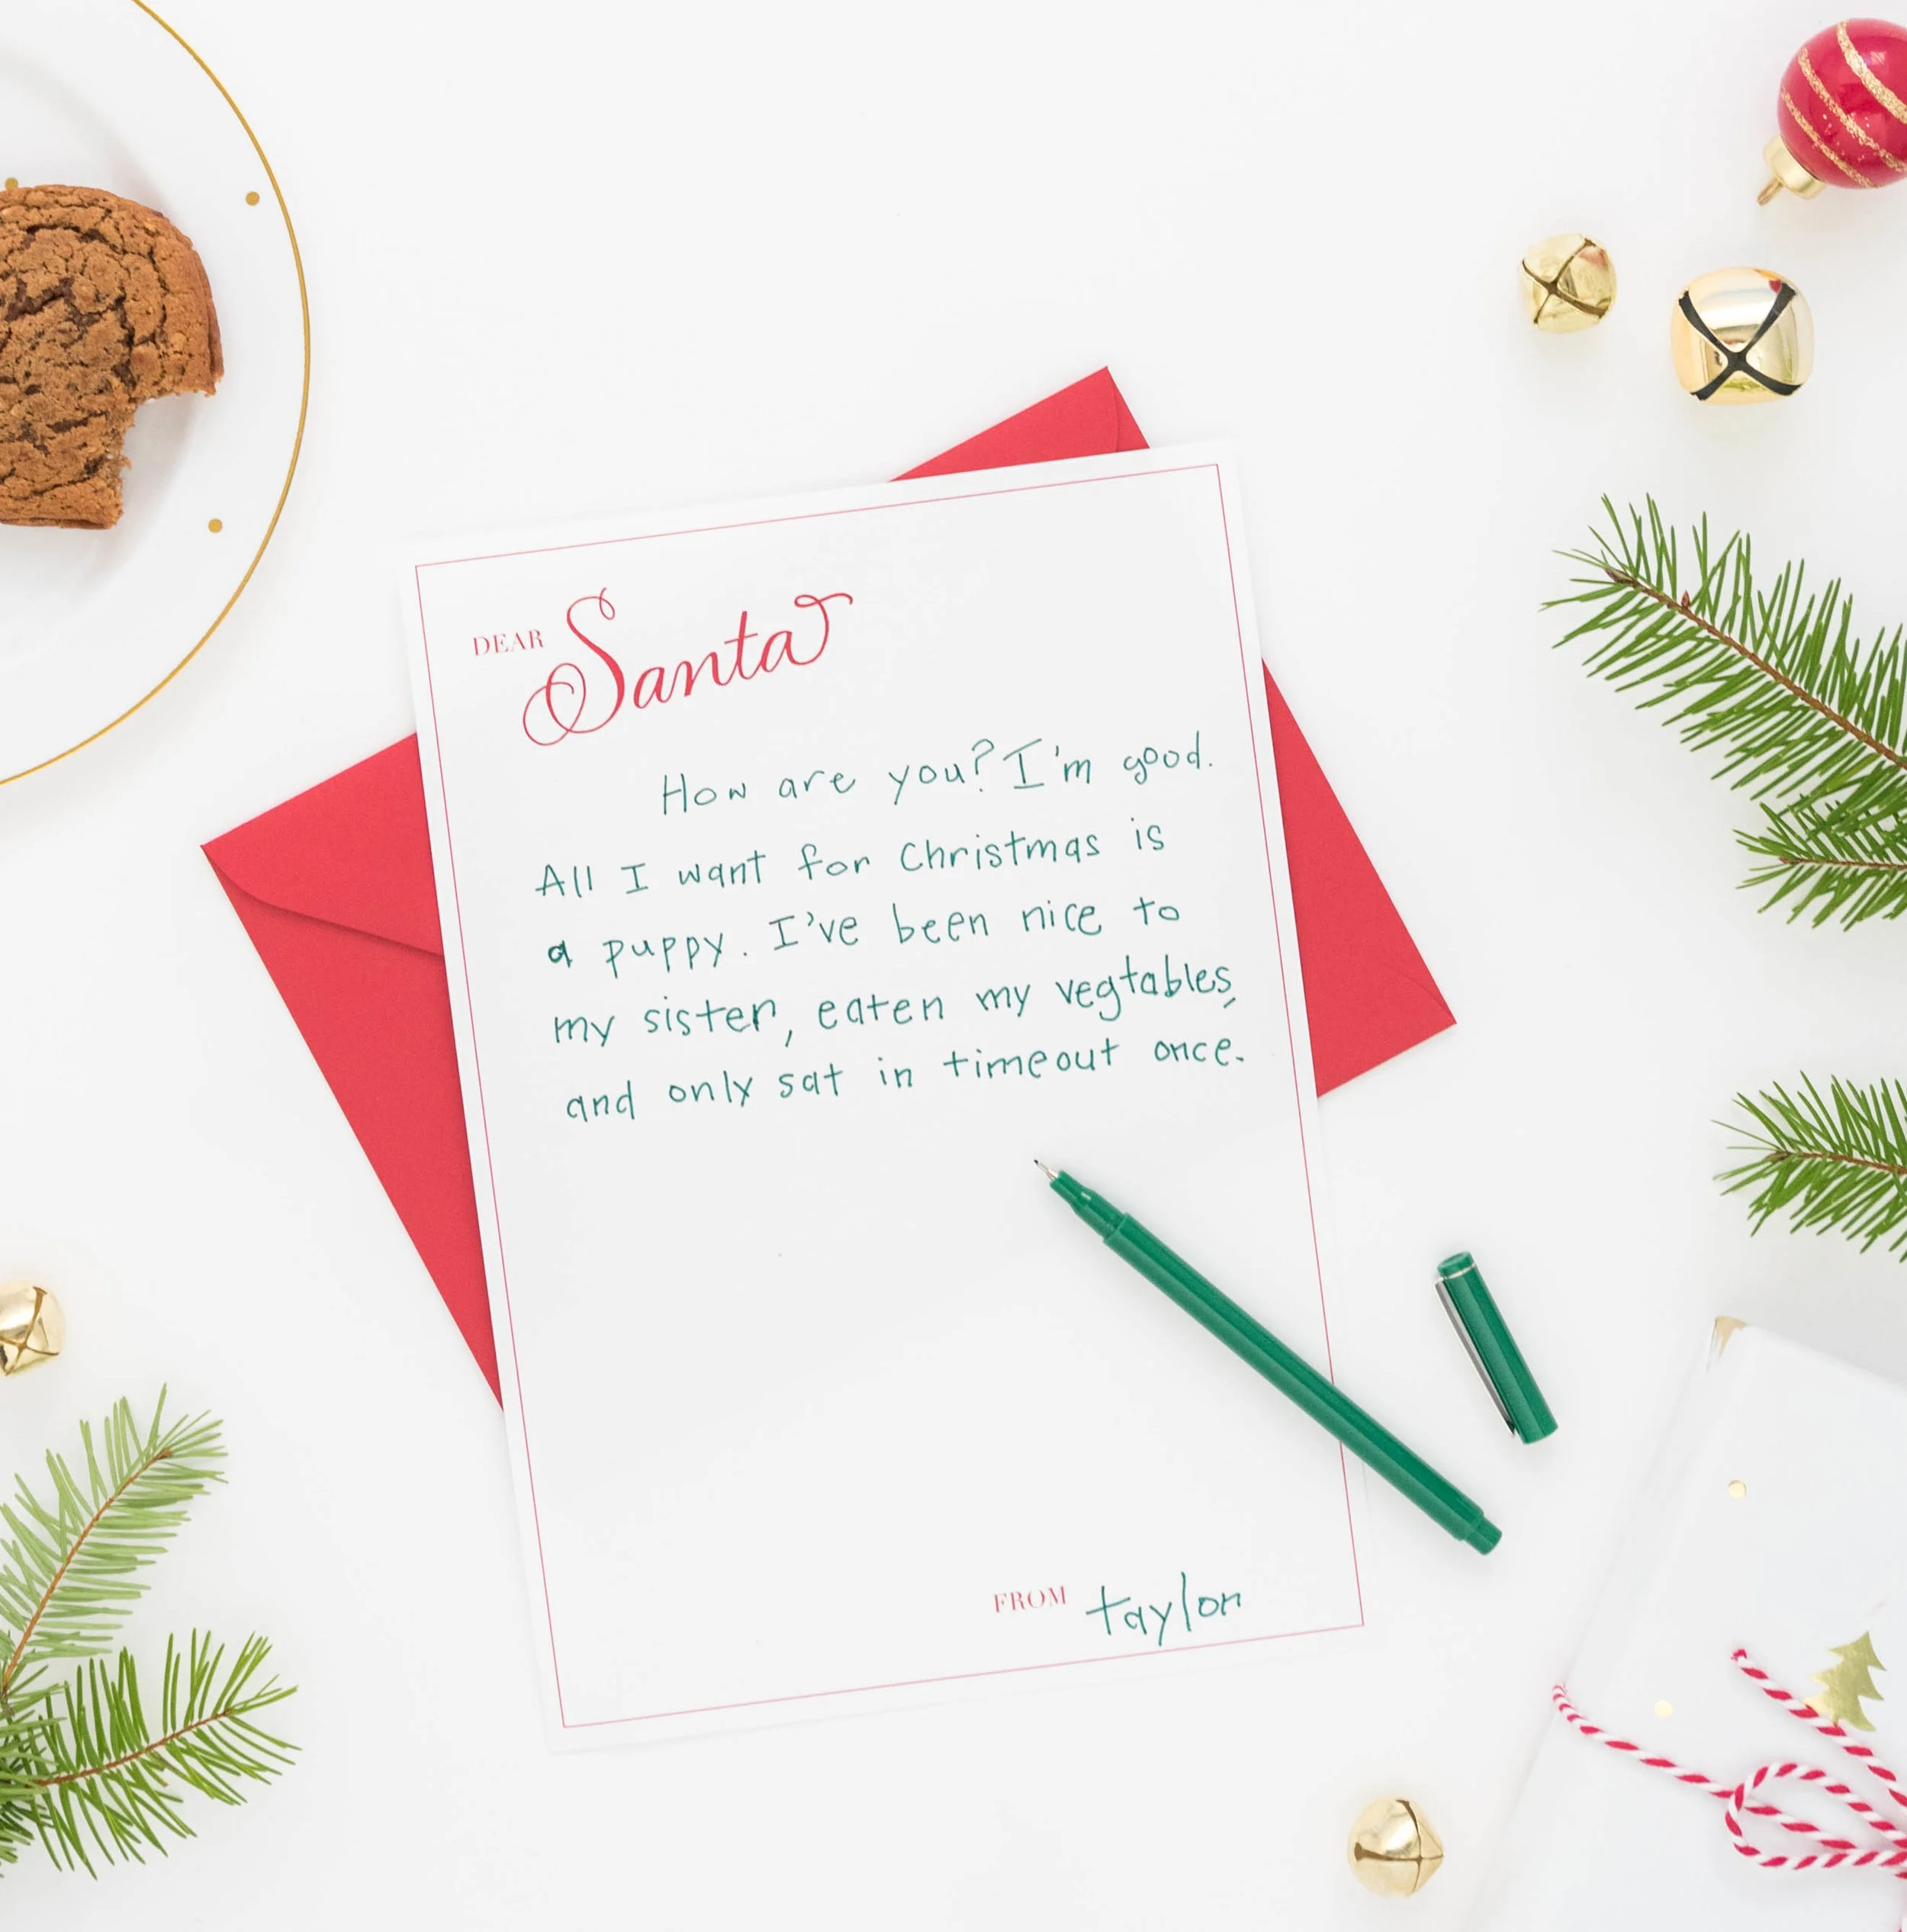 DEAR Santa
How are you? I'm good.
All I want for Christmas is
a puppy. I've been nice to
my sister, eaten my vegtables,
and only sat in timeout once.
FROM taylor